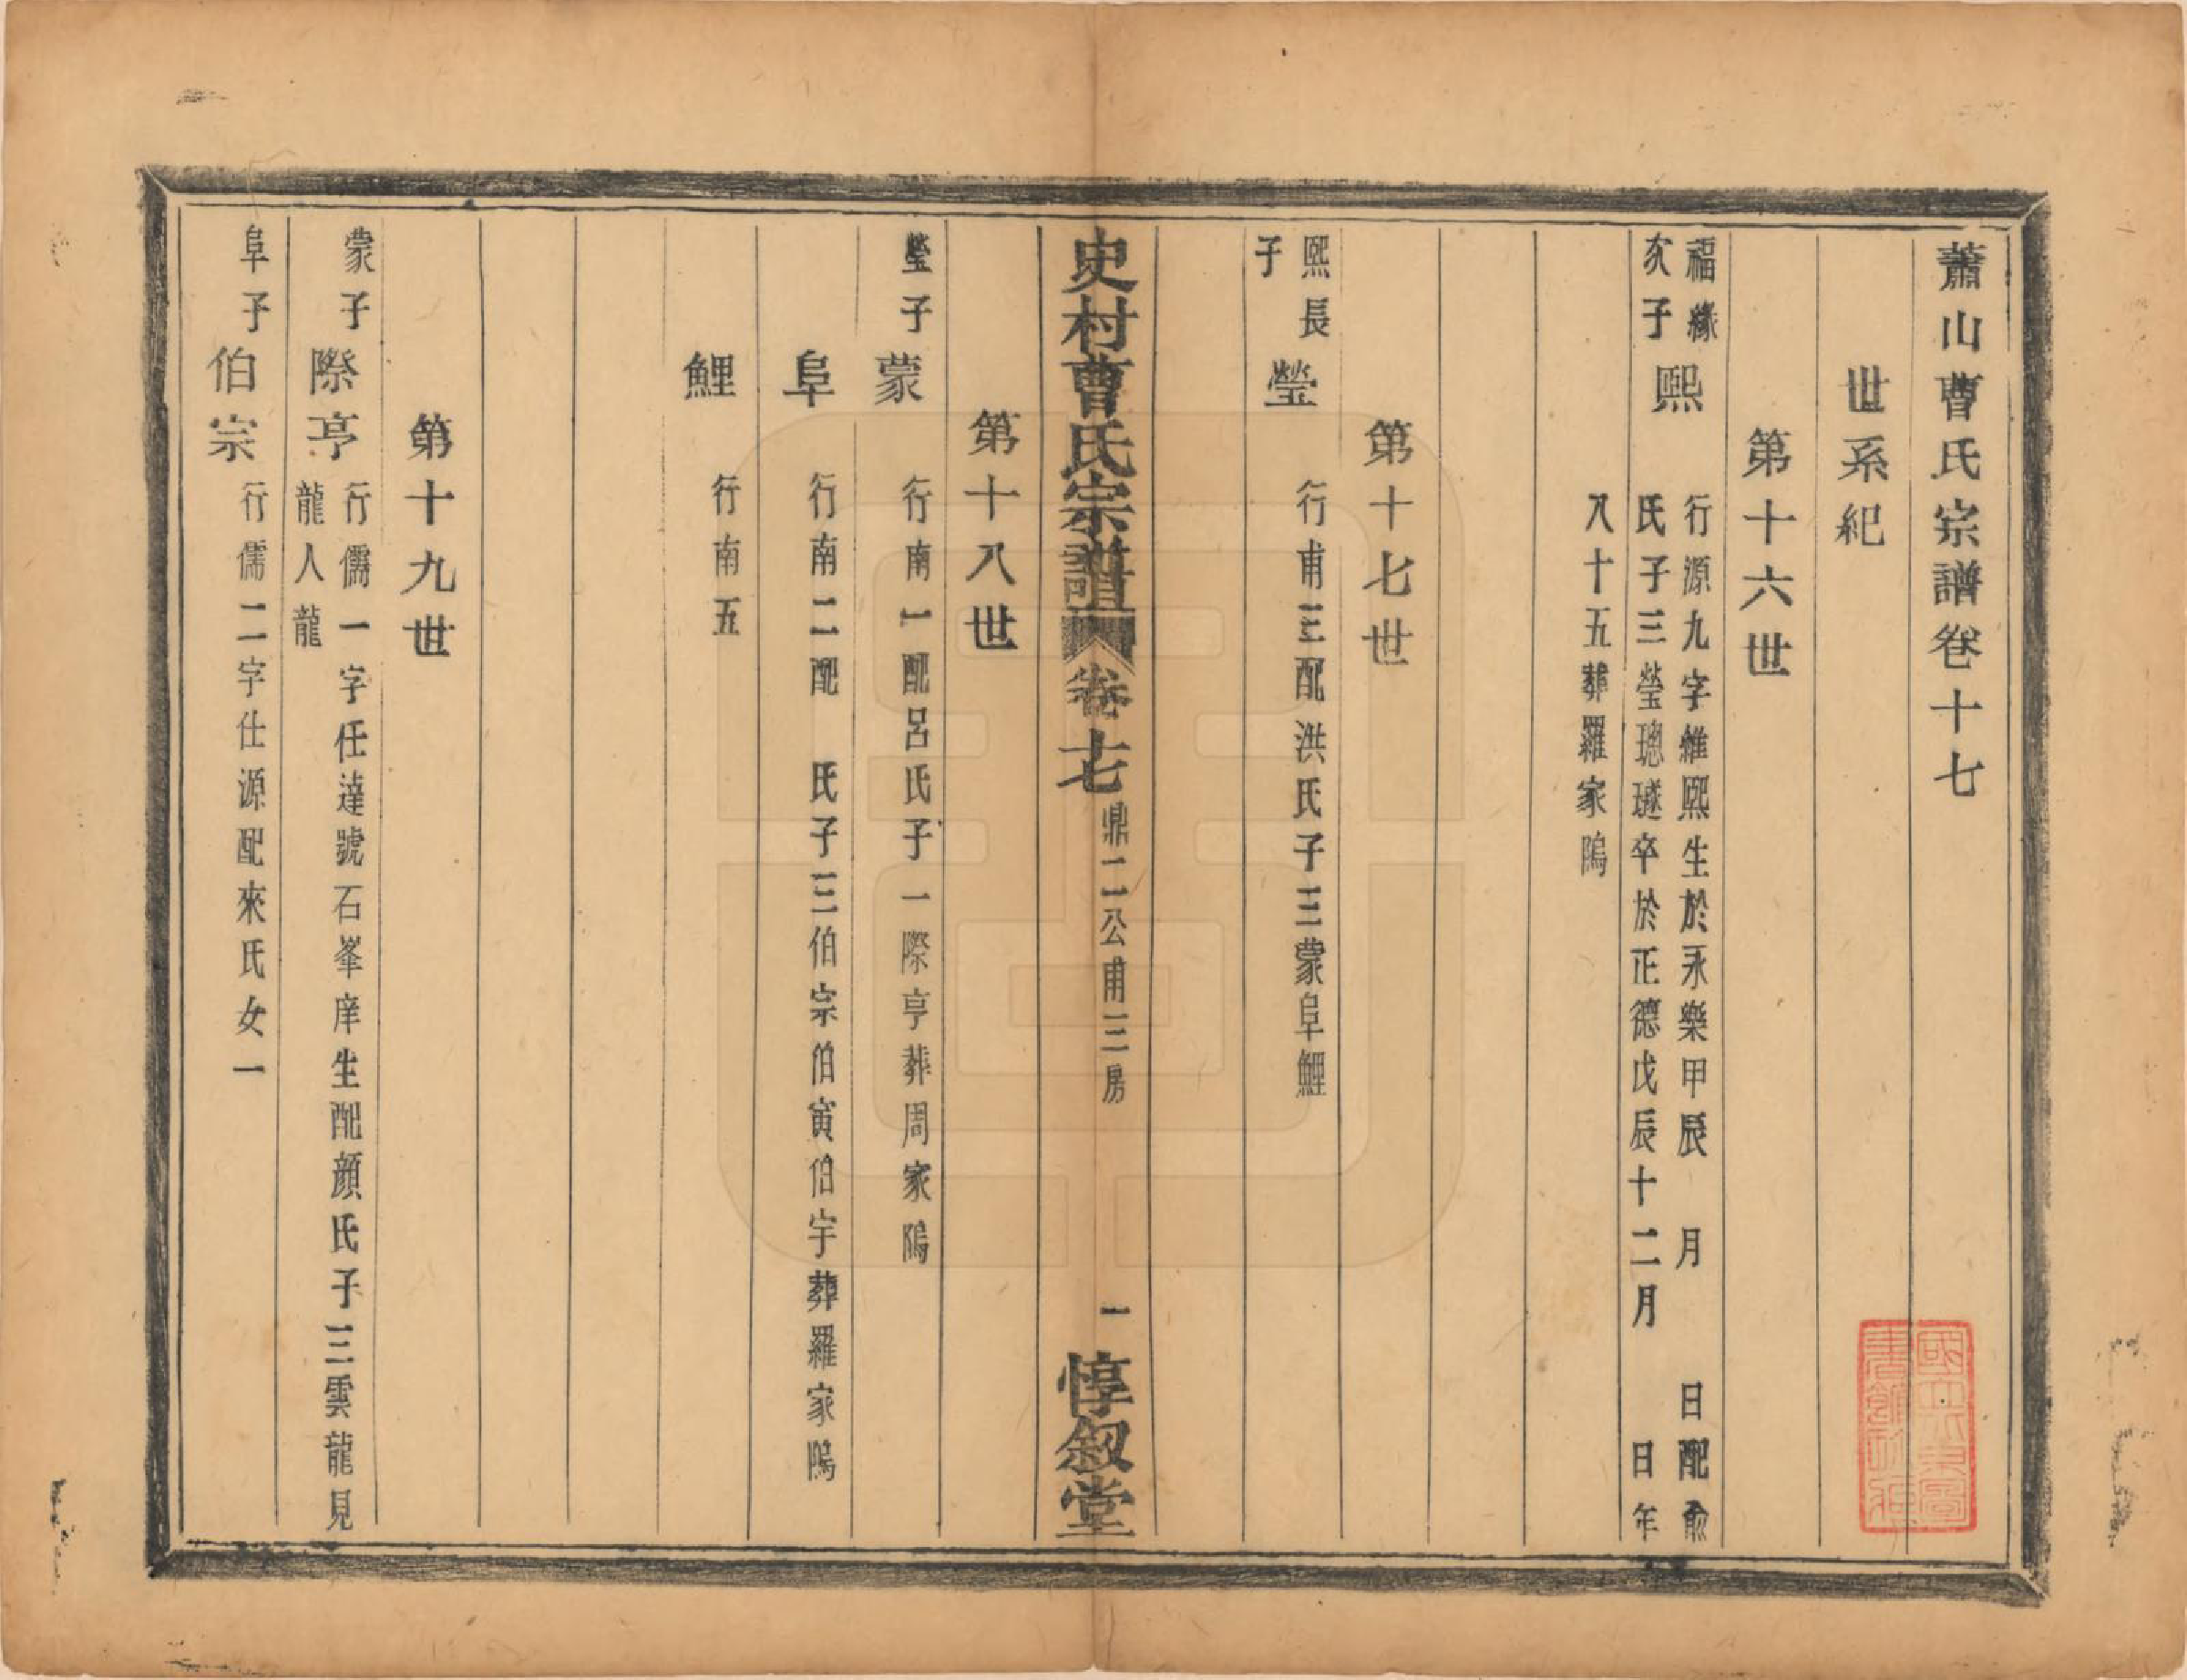 蕭山曹氏宗譜卷十七
世系紀
第十六世
福緣
次子
熙
行源九字維熙生於永樂甲辰 月 日配俞
氏子三瑩璁璲卒於正德戊辰十二月 日年
八十五葬羅家隖
第十七世
熙長
子
瑩
行甫三配洪氏子三蒙阜鯉
史村曹氏宗譜 卷十七 鼎二公甫三房 一 惇敘堂
第十八世
瑩子 蒙 行南一配呂氏子一際亨葬周家隖
阜 行南二配 氏子三伯宗伯寅伯宇葬羅家隖
鯉 行南五
第十九世
蒙子 際亨 行儒一字任達號石峯庠生配顏氏子三雲龍見
龍人龍
阜子 伯宗 行儒二字仕源配來氏女一
國立中央圖
書館所藏